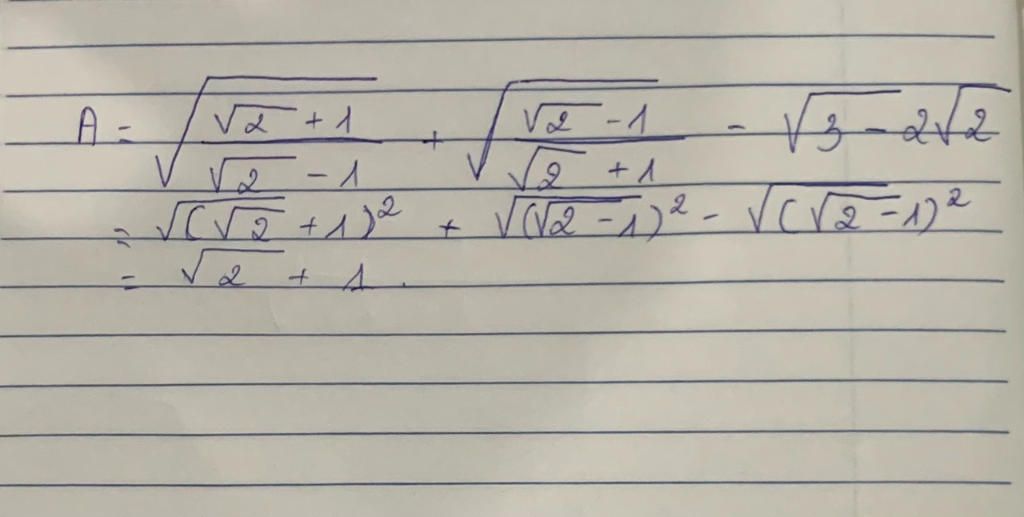 A = √((√2 + 1)/(√2 - 1)) + √((√2 - 1)/(√2 + 1)) - √(3 - 2√2)
= √((√2 + 1)²) + √((√2 - 1)²) - √((√2 - 1)²)
= √2 + 1.